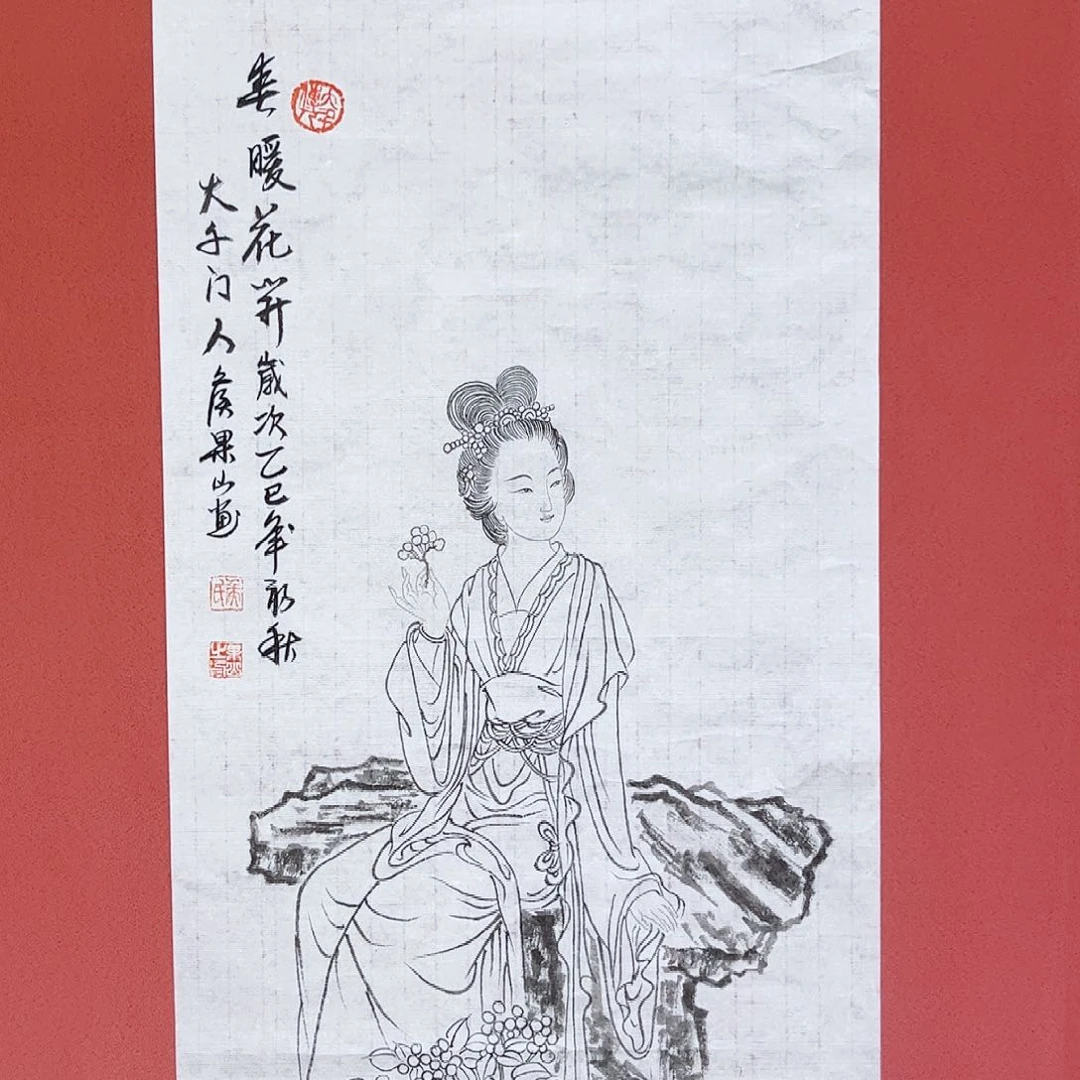 春暖花开岁次乙巳年初秋
大千门人侯果山画
侯氏